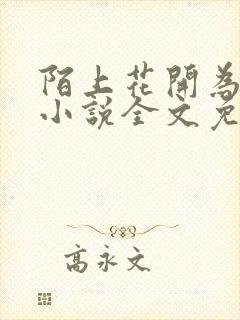 陌上花開為
小說全文免
高永文